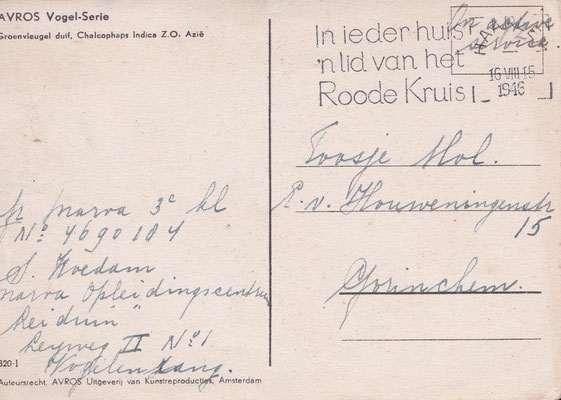 AVROS Vogel-Serie
Groenvleugel duif, Chalcophaps Indica Z.O. Azië
In ieder huis
'n lid van het
Roode Kruis
In active
service.
16 VIII 15
1946
Toosje Mol.
v. Houweningenstr
15
Gorinchem.
marva 3e kl
No 4690184
S. Kvedam
marva Opleidingscentrum
II No 1
Vogelenzang.
320-1
Auteursrecht, AVROS Uitgeverij van Kunstreproducties, Amsterdam